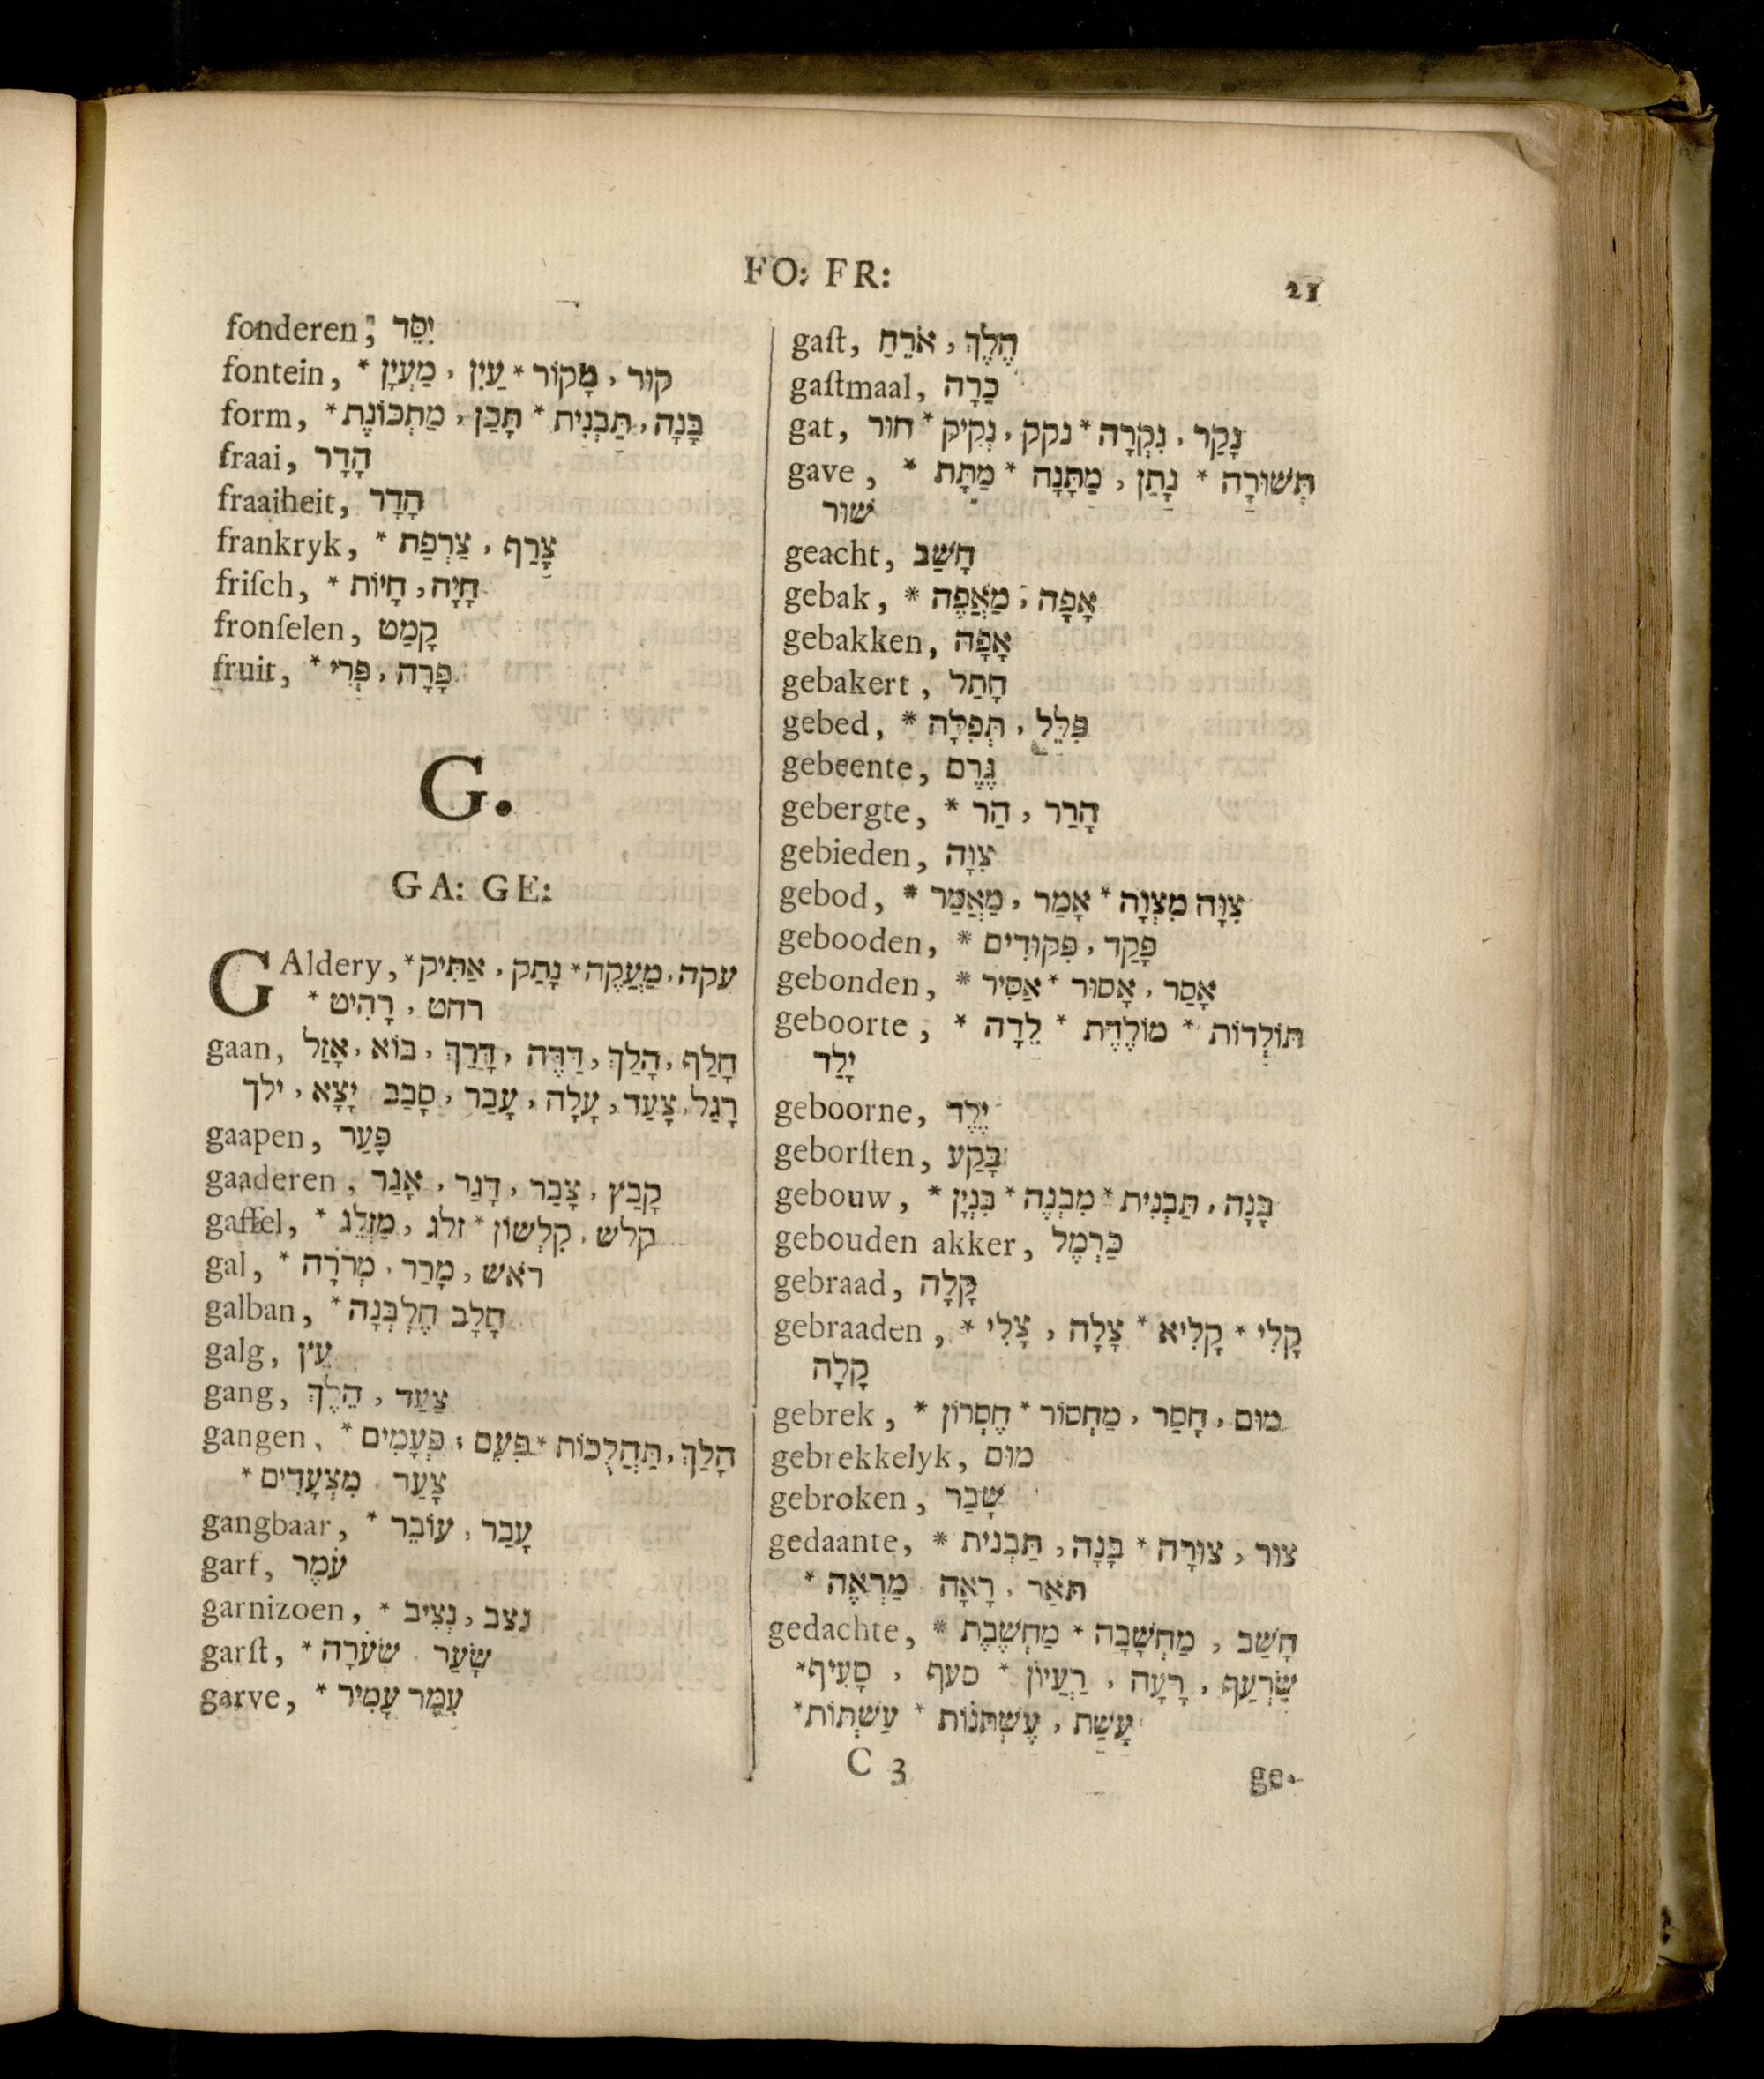 FO: FR:
21
fonderen, יִסֵּד
fontein, * קוּר, מָקוֹר * עַיִן, מַעְיָן
form, * בָּנָה, תַּבְנִית * תָּכַן, מַתְכּוֹנֶת
fraai, הָדָר
fraaiheit, הָדָר
frankryk, * צָרַף, צַרְפַת
friſch, * חָיָה, חָיוֹת
fronſelen, קָמַט
fruit, * פָּרָה, פְּרִי
G.
GA: GE:
GAldery, * עקה, מַעֲקֶה * נָתַק, אַתִּיק
* רחט, רָהִיט
gaan, חָלַף, הָלַךְ, דַּדֶּה, דָּרַךְ, בּוֹא, אָזַל
רָגַל, צָעַד, עָלָה, עָבַר, סָבַב יָצָא, ילך
gaapen, פָּעַר
gaaderen, קָבַץ, צָבַר, דָגַר, אָגַר
gaffel, * קלש, קִלְשׁוֹן * זלג, מַזְלֵג
gal, * ראֹשׁ, מָרַר, מְרֹרָה
galban, * חָלָב חֶלְבְּנָה
galg, עֵץ
gang, צַעַד, הֵלֶךְ
gangen, * הָלַךְ, תַּהֲלֻכוֹת * פַּעַם, פְּעָמִים
* צָעַר מִצְעָדִים
gangbaar, * עָבַר, עוֹבֵר
garf, עֹמֶר
garnizoen, * נצב, נְצִיב
garſt, * שָׂעַר שְׂעֹרָה
garve, * עָמַר עָמִיר
gaſt, הֶלֶךְ, אֹרֵחַ
gaſtmaal, כֵּרָה
gat, נָקַר, נִקְרָה * נקק, נְקִיק * חוּר
gave, * תְּשׁוּרָה * נָתַן, מַתָּנָה * מַתָּת
שׁוּר
geacht, חָשַׁב
gebak, * אָפָה, מַאֲפֶה
gebakken, אָפָה
gebakert, חָתַל
gebed, * פִּלֵּל, תְּפִלָּה
gebeente, גֶּרֶם
gebergte, * הָרַר, הַר
gebieden, צִוָּה
gebod, * צִוָּה מִצְוָה * אָמַר, מַאֲמַר
gebooden, * פָּקַד, פִּקּוּדִים
gebonden, * אָסַר, אָסוּר * אַסִּיר
geboorte, * תּוֹלְדוֹת * מוֹלֶדֶת * לֵדָה
יָלַד
geboorne, יֶלֶד
geborſten, בָּקַע
gebouw, * בָּנָה, תַּבְנִית * מִבְנֶה * בִּנְיָן
gebouden akker, כַּרְמֶל
gebraad, קָלָה
gebraaden, * קָלִי * קָלִיא * צָלָה, צָלִי
קָלָה
gebrek, * מוּם, חָסַר, מַחְסוֹר * חֶסְרוֹן
gebrekkelyk, מוּם
gebroken, שָׁבַר
gedaante, * צור, צוּרָה * בָּנָה, תַּבְנִית
* תּאַר, רָאָה מַרְאֶה
gedachte, * חָשַׁב, מַחְשָׁבָה * מַחְשֶׁבֶת
* שַׂרְעַף, רָעָה, רַעְיוֹן * סעף, סָעִיף
* עָשַׁת, עֶשְׁתּנוֹת * עַשְׁתּוֹת
C 3
ge-